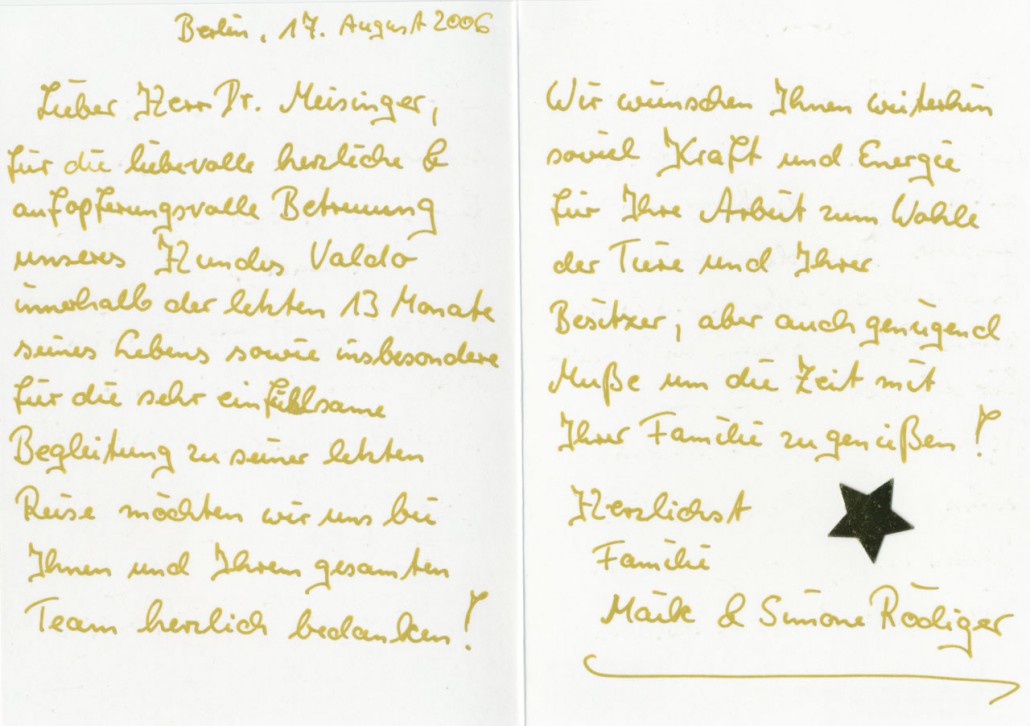 Berlin, 17. August 2006
Lieber Herr Dr. Meisinger,
für die liebevolle herzliche &
aufopferungsvolle Betreuung
unseres Hundes Valdo
innerhalb der letzten 13 Monate
seines Lebens sowie insbesondere
für die sehr einfühlsame
Begleitung zu seiner letzten
Reise möchten wir uns bei
Ihnen und Ihrem gesamten
Team herzlich bedanken!
Wir wünschen Ihnen weiterhin
soviel Kraft und Energie
für Ihre Arbeit zum Wohle
der Tiere und Ihrer
Besitzer, aber auch genügend
Muße um die Zeit mit
Ihrer Familie zu genießen!
Herzlichst
Familie
Maik & Simone Rödiger